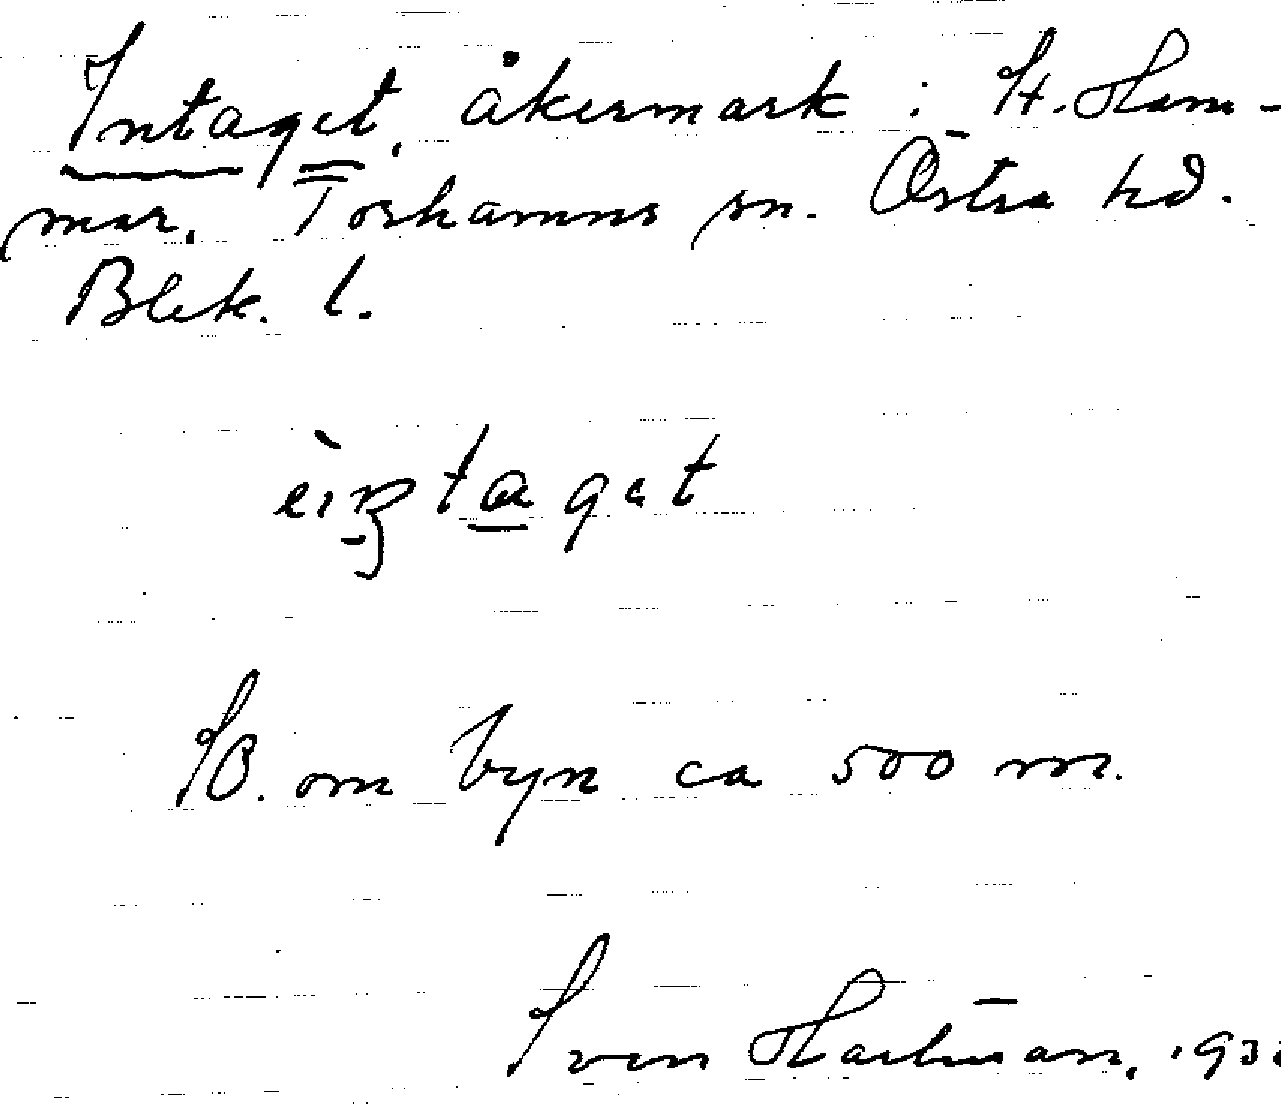 Intaget, åkermark i St. Ham-
mar, Torhamns sn. Östra hd.
Blek. l.
SO. om byn ca 500 m.
Sven Hartman, 193